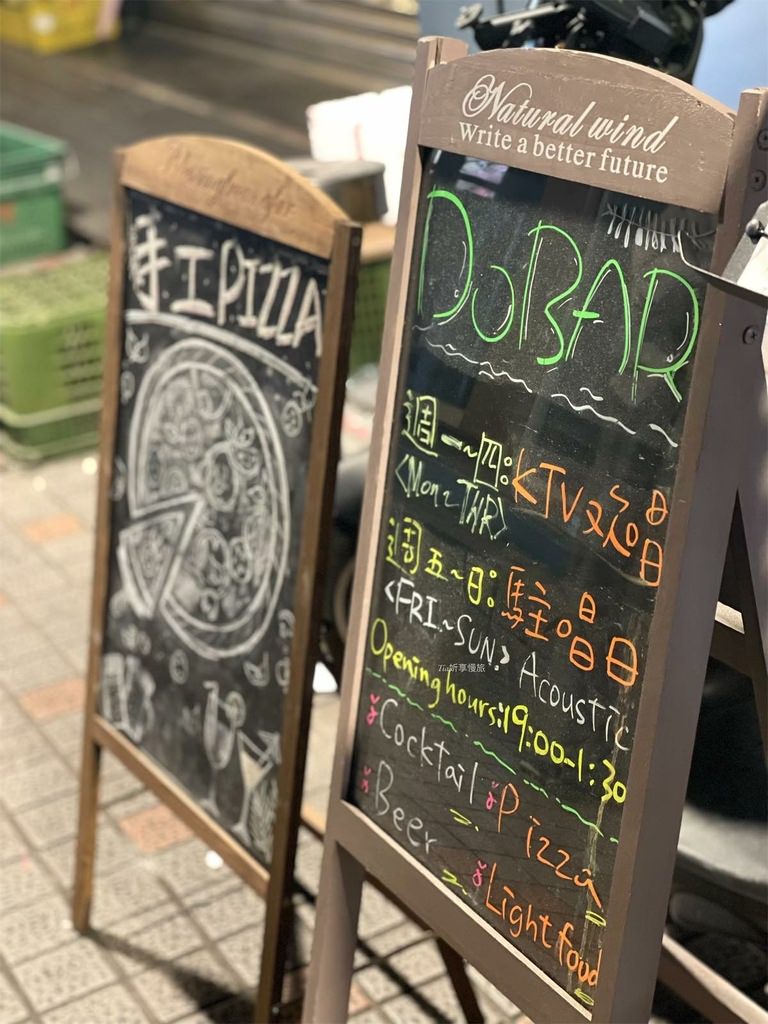 手工PIZZA
Natural wind
Write a better future
DoBAR
週一~四:KTV歡唱
<Mon~THR>
週五~日:駐唱日
<FRI.~SUN> Acoustic
Tia妡享慢旅
Opening hours:19:00~1:30
Cocktail Pizza
Beer Light food